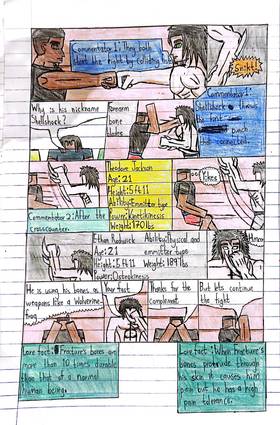 Commentator 1: They both
start the fight by colliding fists
Snikt!
Commentator 1:
Shellshock throws
the first
punch
that connected.
Why is his nickname
Shellshock?
Forearm
bone
blades
Theodore Jackson
Age: 21
Height: 5ft 11
Ability: Emmitter type
Power: Kinetikinesis
Weight: 170 lbs
Yikes
Commentator 2: After the
crosscounter.
Ethan Rodwick
Age: 21
Height: 5ft 11
Power: Osteokinesis
Ability: Physical and
emmitter type
Weight: 189 lbs
He is using his bones as
weapons like a Wolverine
frog
Your foot
Thanks for the
compliment
But lets continue
the fight
Lore fact: Fracture's bones are
more than 10 times durable
than that of a normal
human being.
Lore fact: When Fracture's
bones protrude through
his skin it causes him
pain but he has a high
pain tolerance.